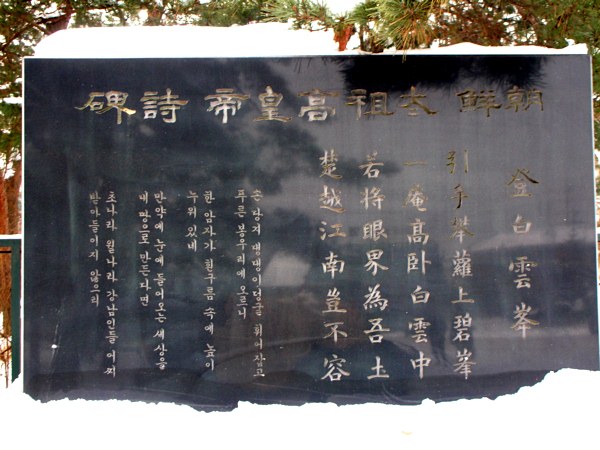 朝鮮 太祖高皇帝 詩碑
登白雲峯
引手攀蘿上碧峯
一菴高臥白雲中
若將眼界為吾土
楚越江南豈不容
손 당겨 댕댕이덩굴 휘어잡고
푸른 봉우리에 오르니
한 암자가 흰구름 속에 높이
누워 있네
만약에 눈에 들어오는 세상을
내 땅으로 만든다면
초나라 월나라 강남인들 어찌
받아들이지 않으리